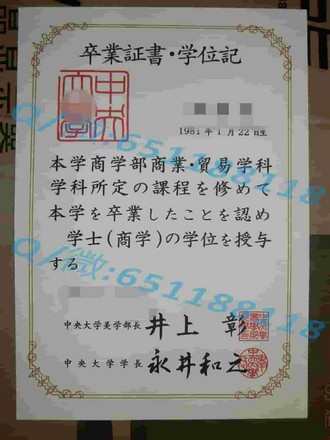 卒業証書・学位記
1981年1月22日生
本学商学部商業・貿易学科
学科所定の課程を修めて
本学を卒業したことを認め
学士(商学)の学位を授与
する
中央大学美学部長 井上 彰
中央大学学長 永井和之
Q/微:651188118
Q/微:651188118